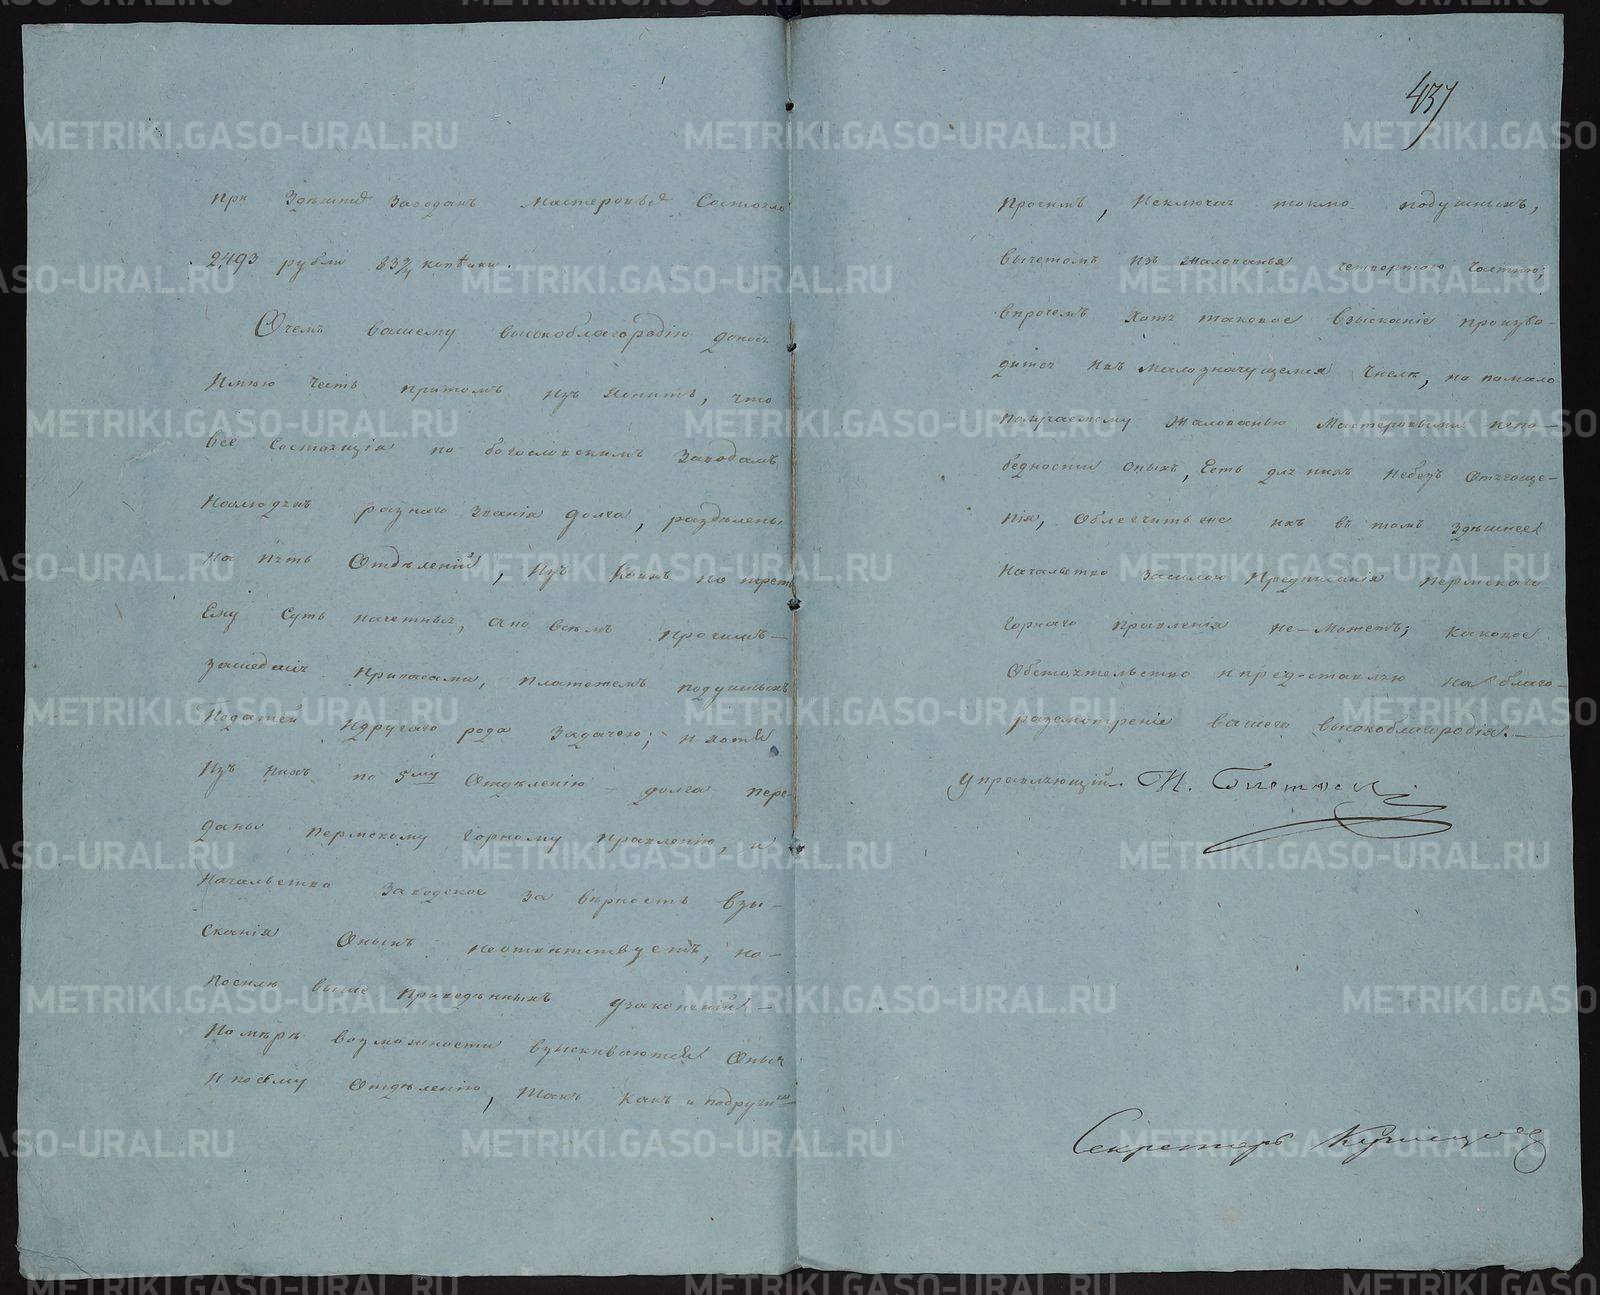 при Здѣшнихъ Заводахъ Мастеровые Состояло
2,493 рубли 83¾ копѣики.
О чемъ вашему высокоблагородію донося
Имѣю честь притомъ изъяснить, что
все состоящія по богословскимъ Заводамъ
На людяхъ разнаго званія долга, раздѣлены
на пять Отдѣленій, Изъ коихъ по трет
ему суть начетныя, а по всѣмъ прочимъ
зашедшіе припасами, платежемъ подушныхъ
Податей и другаго рода задачею; и хотя
Изъ нихъ по 5му Отдѣленію долга пере-
даны Пермскому Горному Правленію, и
Начальство Заводское за вѣрность взы-
сканія Оныхъ неответствуетъ, но
Посилѣ выше приведенныхъ узаконеній
По мѣрѣ возможности взыскиваются Оныя
И посему Отдѣленію, такъ какъ и подругимъ
437
Прочимъ, Исключая токмо подушныхъ,
вычетомъ изъ жалованья четвертою частію;
впрочемъ хотя таковое взысканіе произво-
дится изъ малозначущемся числѣ, но по мало
Получаемому жалованью Мастеровыми и по
бедности оныхъ, Есть для нихъ небезъ Отягоще-
нія, Облегчить же ихъ въ томъ здѣшнее
Начальство засилою Предписанія Пермскаго
Горнаго Правленія не-можетъ; каковое
Обстоятельство и представляю на благо-
разсмотреніе вашего высокоблагородія.
Управляющій Н.
Секретарь Кузнецовъ
METRIKI.GASO-URAL.RU